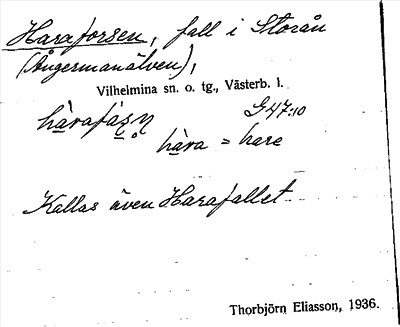 Haraforsen, fall i Storån
(Ångermanälven),
Vilhelmina sn. o. tg., Västerb. l.
G47:10
hàrafȧʂn̥
hàra = hare
Kallas även Harafallet
Thorbjörn Eliasson, 1936.